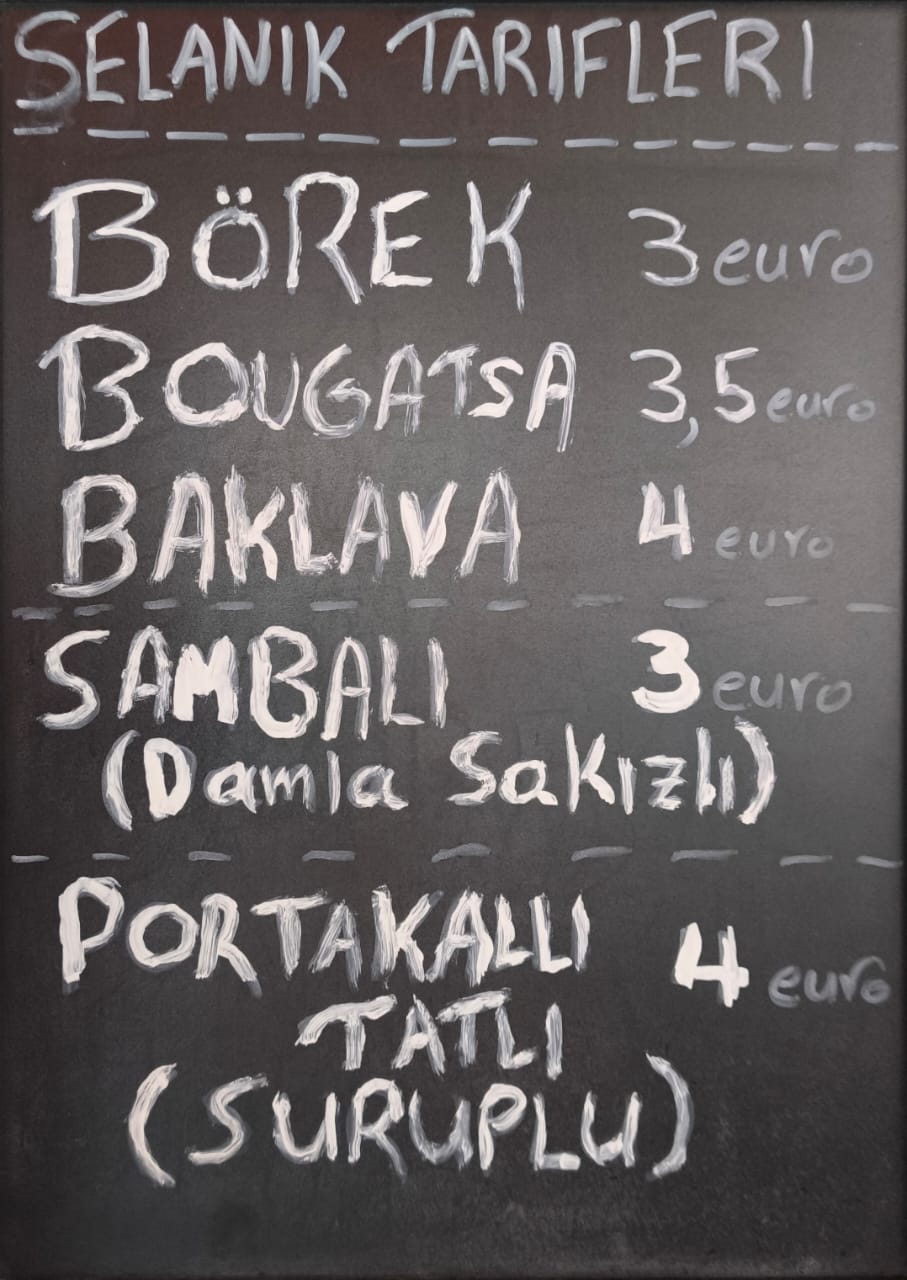 SELANIK TARIFLERI
BÖREK 3 euro
BOUGATSA 3,5 euro
BAKLAVA 4 euro
SAMBALI 3 euro
(Damla Sakızlı)
PORTAKALLI 4 euro
TATLI
(SURUPLU)